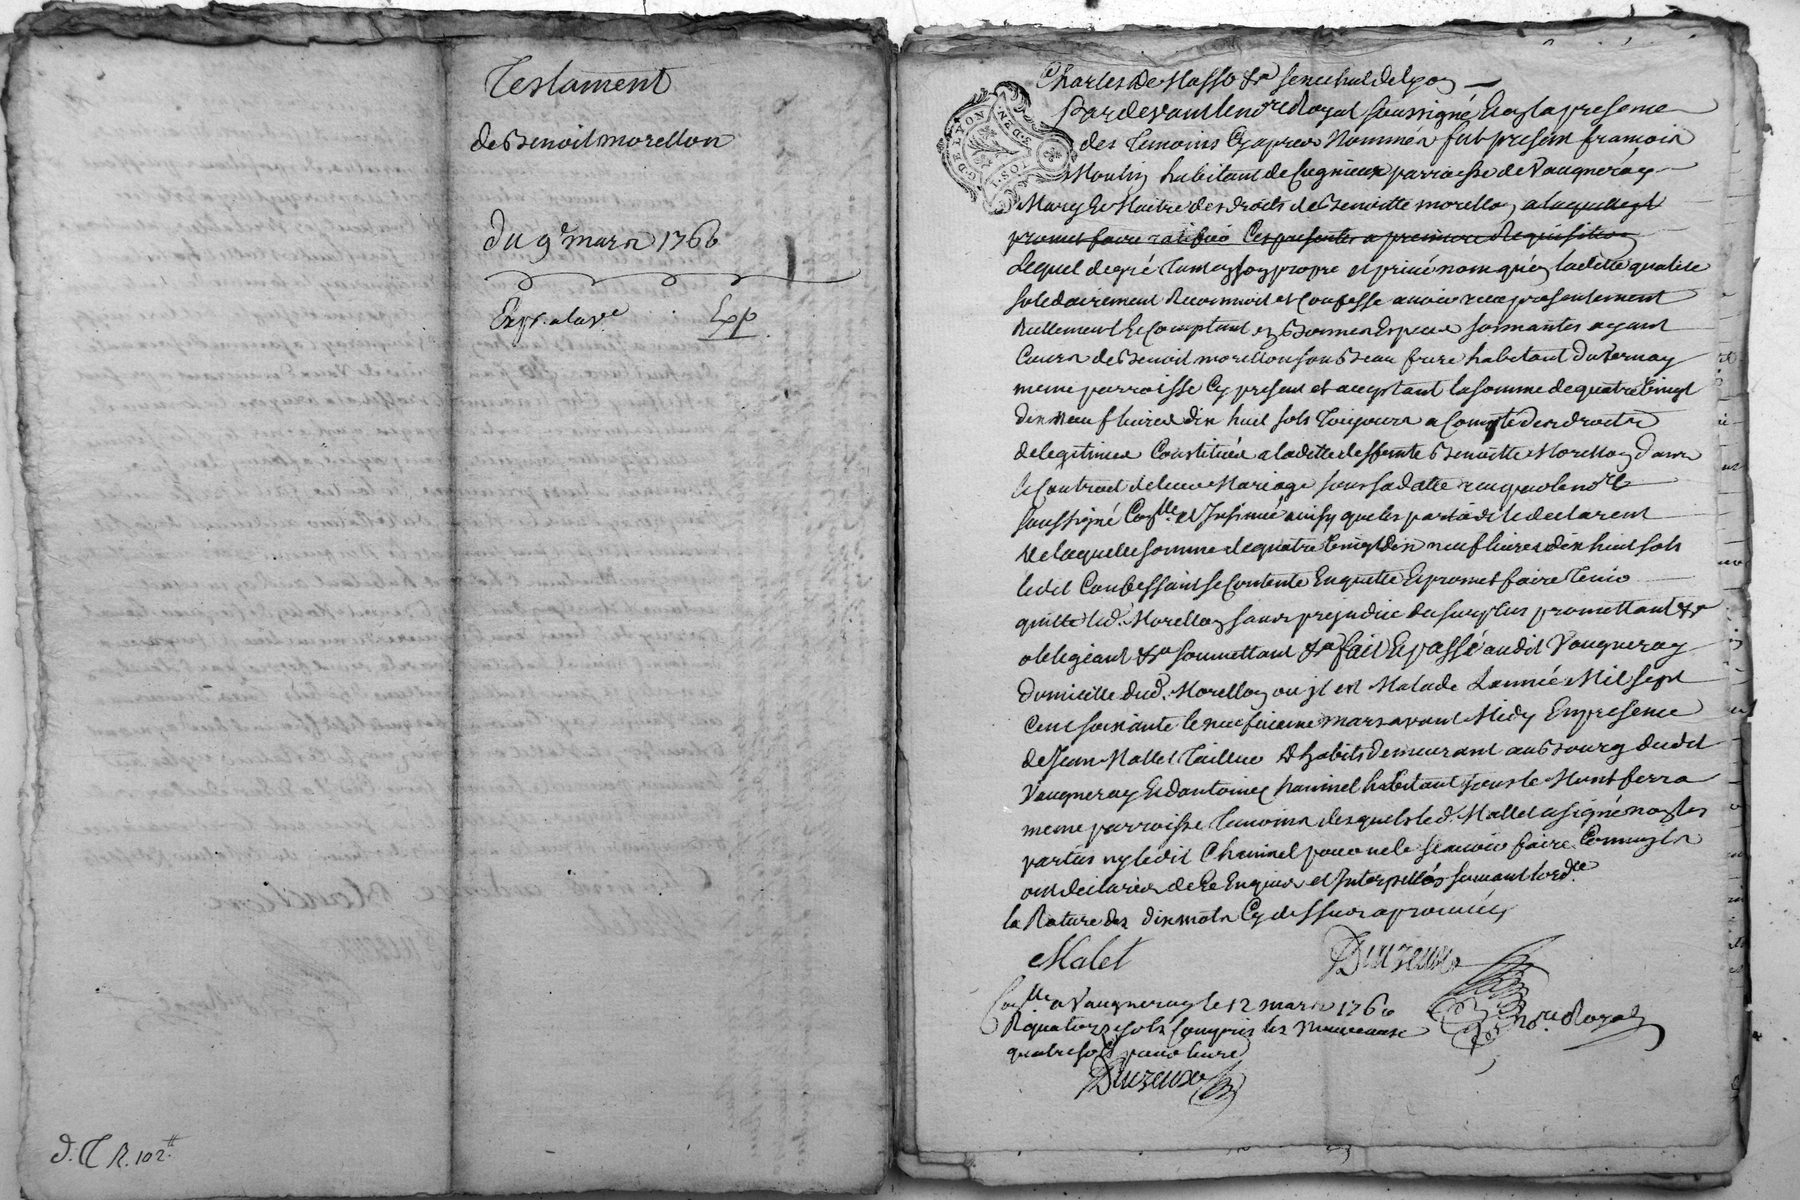 Testament
de Benoit morellon
du 9e mars 1760
Exp. a la ve Exp
d. T R. 102 tt
G. DE LYON
Charles de Masso &a senechal de Lyon
Pardevant le nore Royal soussigné Et en la presence
des Temoins Cy apres Nommés fut present francois
Moulin habitant de Cugnieux parroisse de Vaugneray
Mary Et Maitre des droits de Benoitte morellon a laquelle il
promet faire ratifier Ces presentes a premiere Requisition
Lequel de gré Tant en son propre et privé nom qu'en ladette qualité
solidairement Reconnoit et Confesse avoir receu presentement
Reellement Et Comptant en Bonnes Especes sonnantes ayant
Cours de Benoit morellon son Beau frere habitant du Vernay
meme parroisse Cy present et acceptant la somme de quatre Vingt
dix Neuf livres dix huit sols Toujours a Compte des droits
de legitimes Constitués a ladette deffunte Benoitte Morellon dans
le Contract de leur Mariage sous sa datte receu par le nore
soussigné Conllé et Insinué ainsy que les parties le declarent
de laquelle somme de quatre Vingt dix neuf livres dix huit sols
ledit Confessant se Contente En quitte Et promet faire Tenir
quitte led. Morellon sans prejudice du surplus promettant &a
obligeant &a soumettant &a fait Et passé audit Vaugneray
domicille dud. Morellon ou il est Malade L'année Mil sept
Cent soixante le neufvieme mars avant Midy En presence
de Jean Mallet Tailleur d'habits demeurant au Bourg dudit
Vaugneray Et d'antoine Chaninel habitant sous le Montferra
meme parroisse Temoins desquels le d. Mallet a signé non les
parties ny ledit Chaninel pour ne le scavoir faire Comme ils
ont declaré de Ce Enquis et Interpellés suivant l'ord.ce
la Rature des dix mots Cy dessus approuvée
Malet
Conllé a Vaugneray le 12 mars 1760
R quatorze sols Compris les Nouveaux
quatre sols pour livre
nore Royal